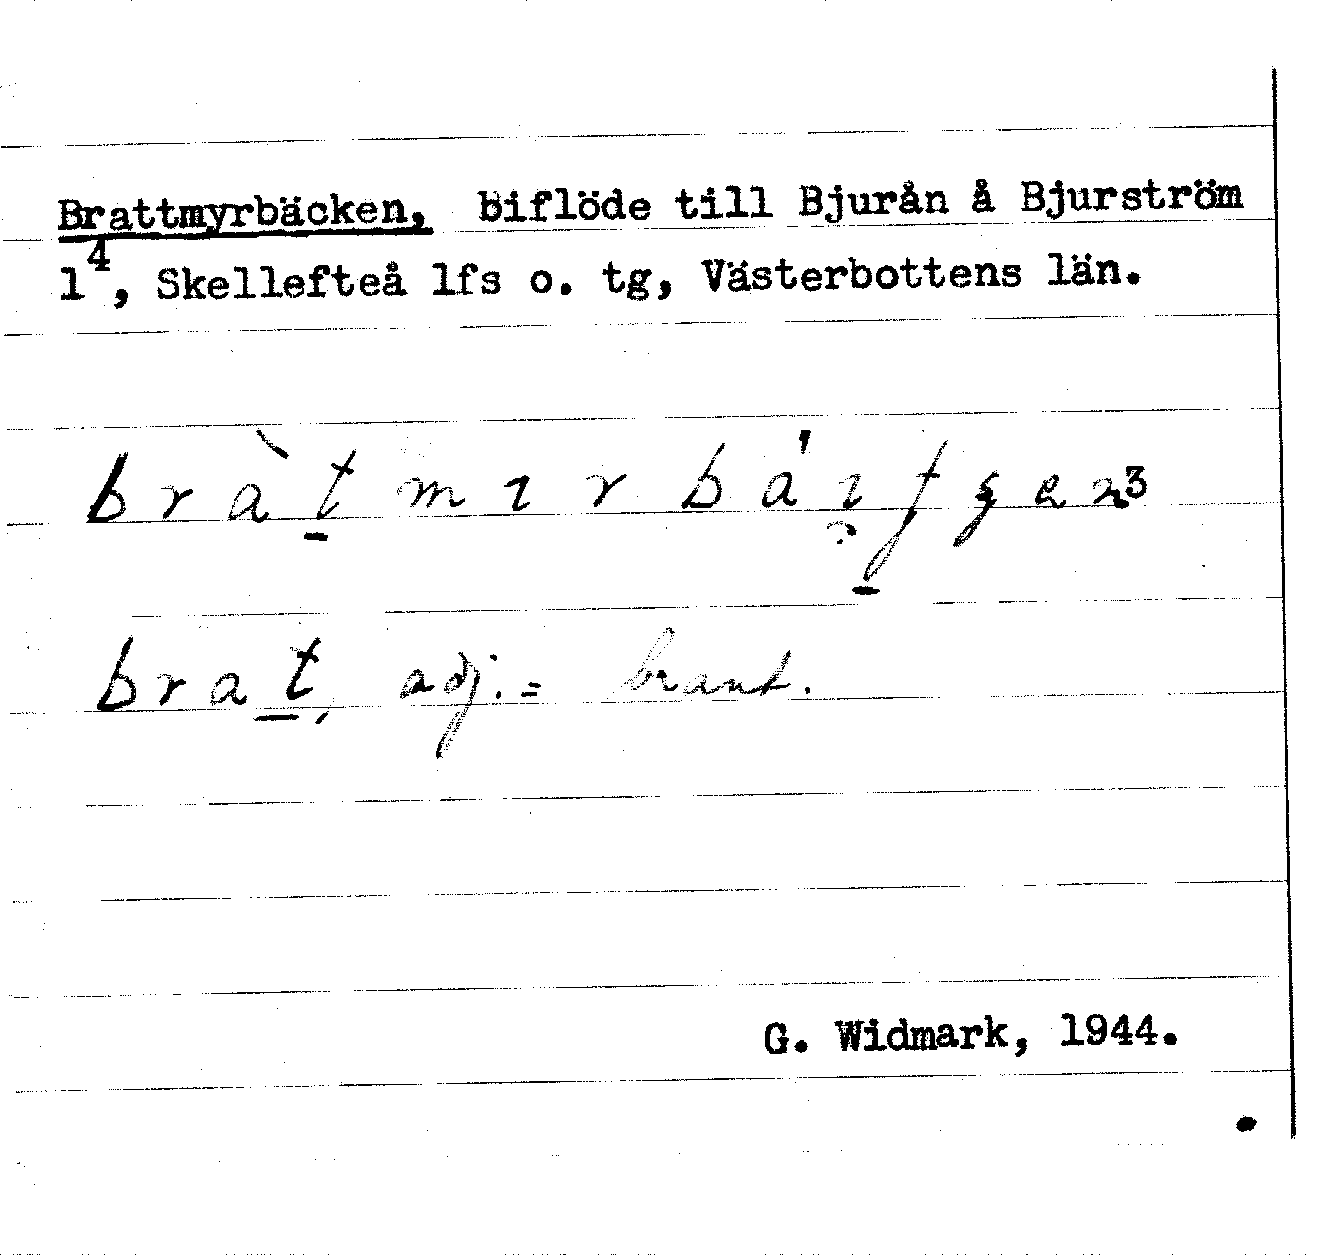 Brattmyrbäcken, biflöde till Bjurån å Bjurström
1⁴, Skellefteå lfs o. tg, Västerbottens län.
brat, adj. = brant.
G. Widmark, 1944.